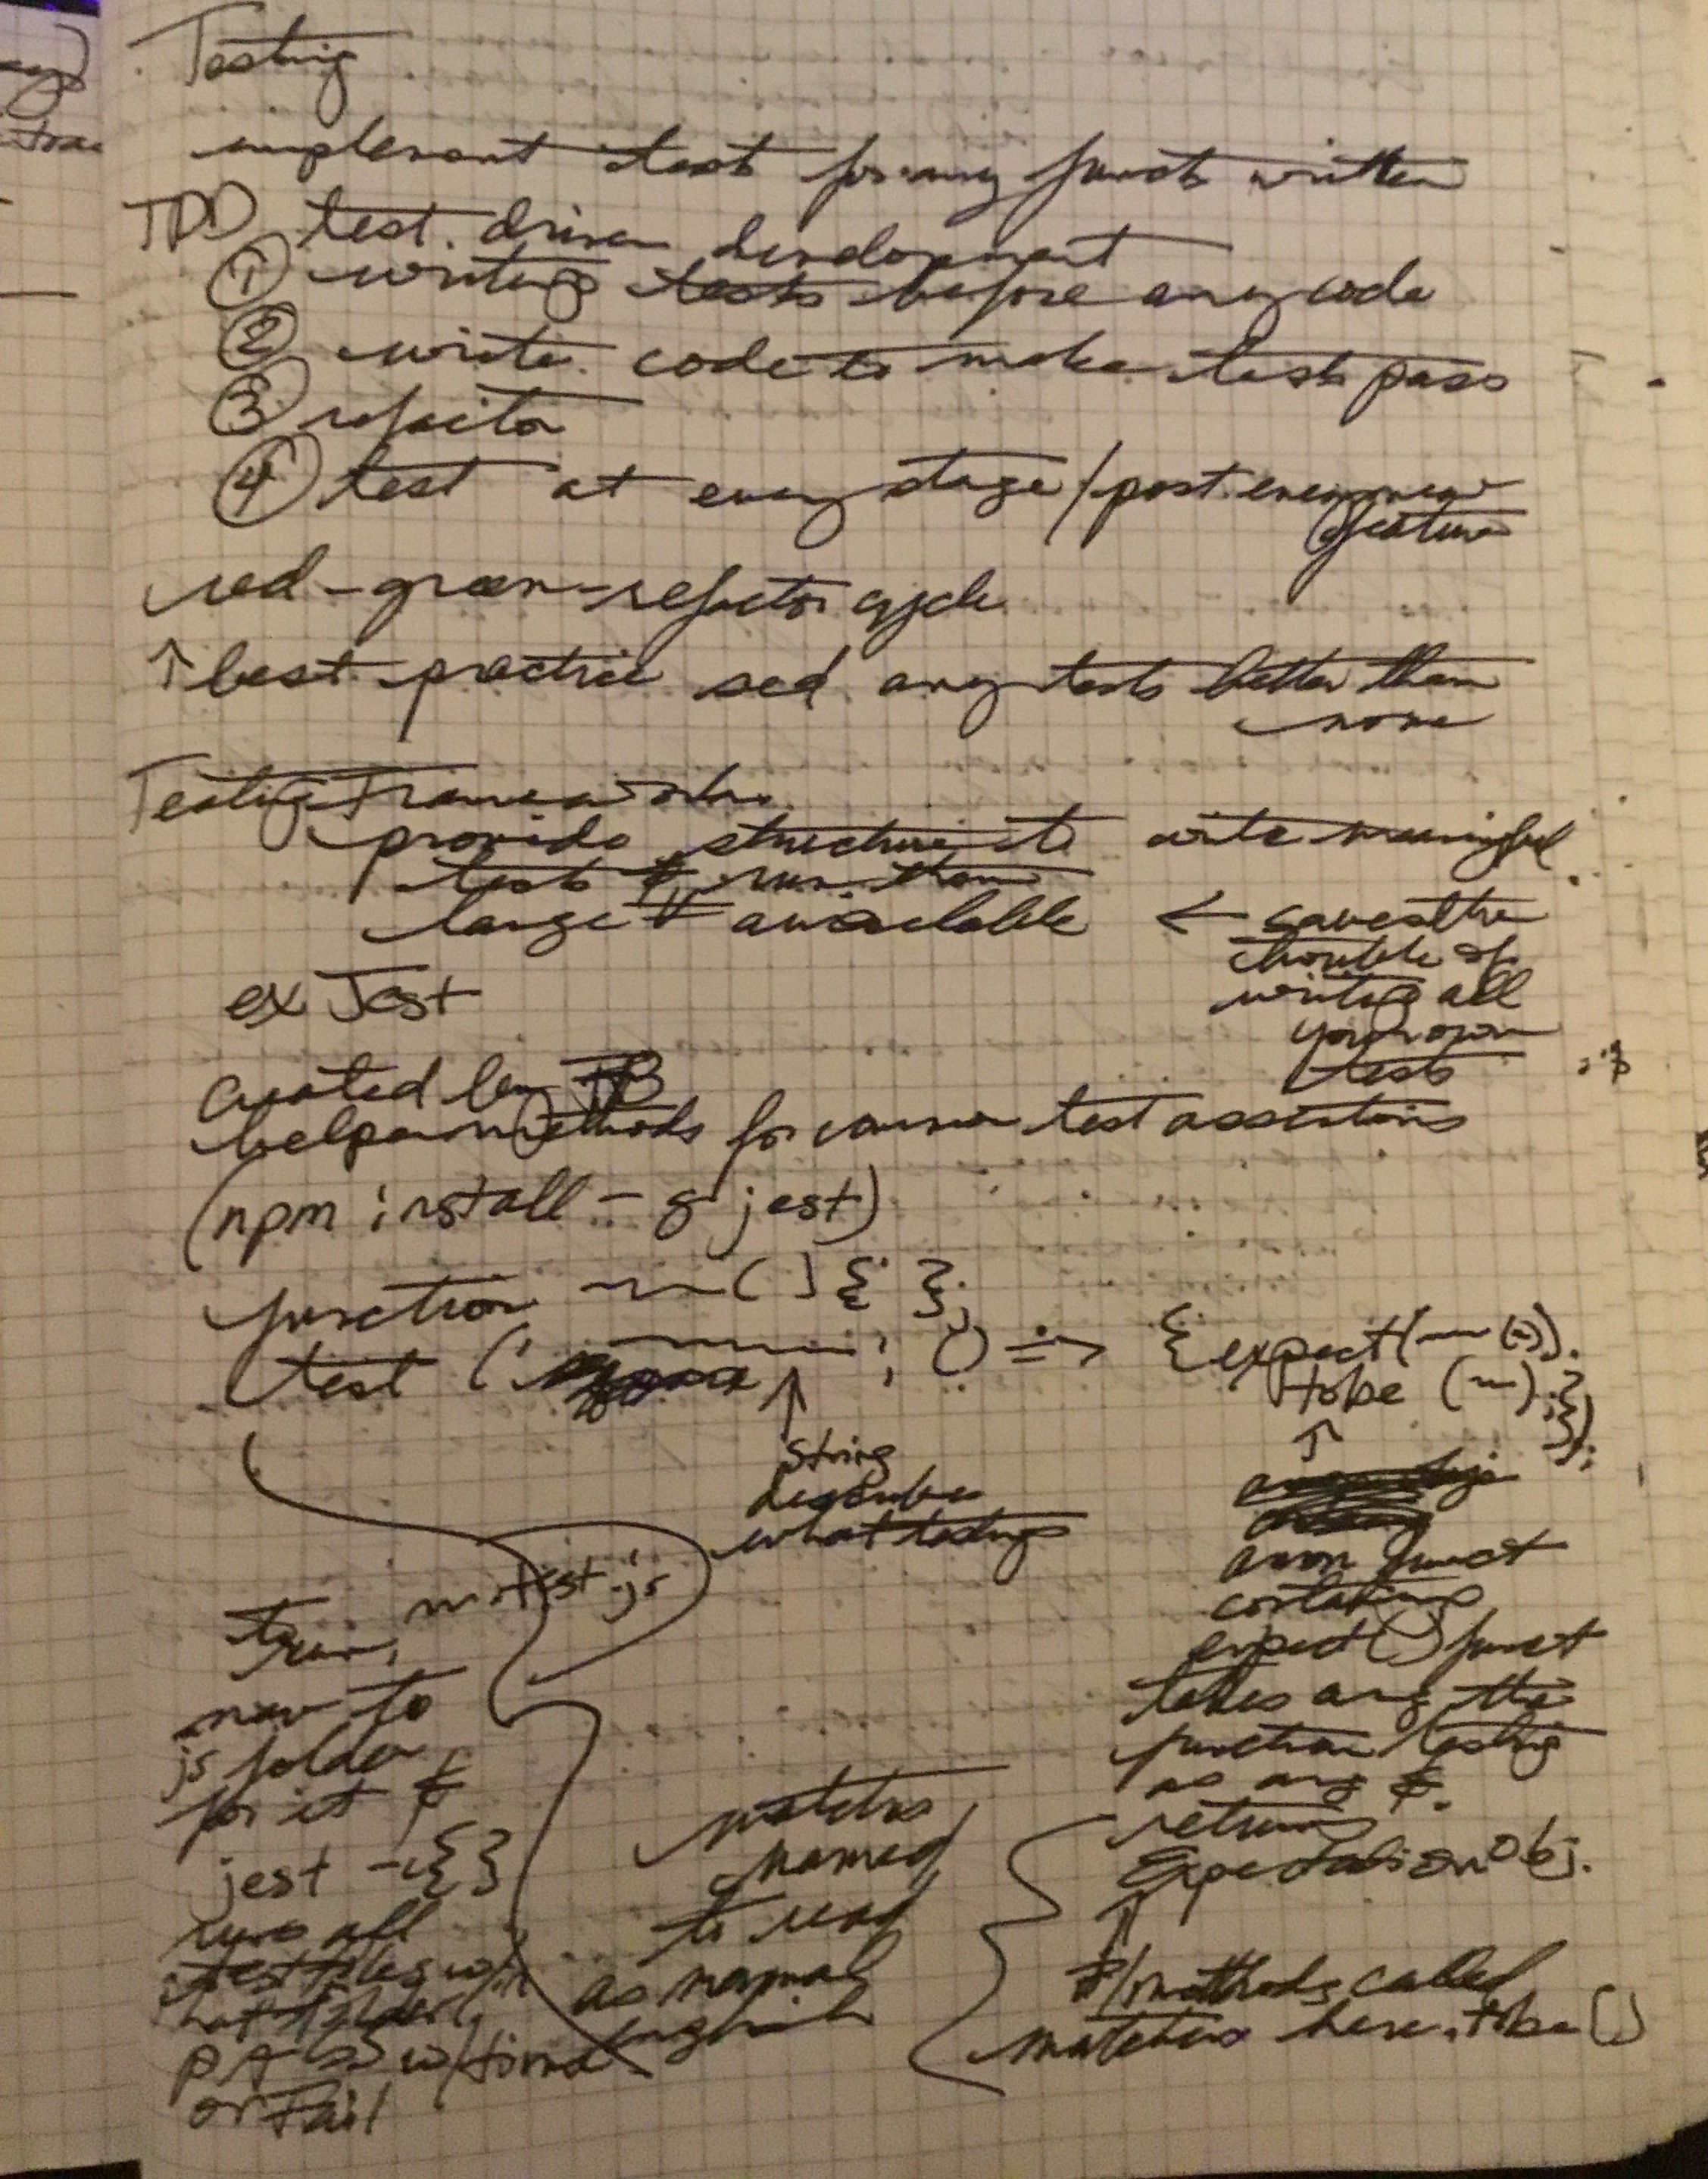 Testing
implement tests for any functs written
TDD test driven development
① writing tests before any code
② write code to make tests pass
③ refactor
④ test at every stage/post every new
feature
red-green-refactor cycle
↑ best practice any tests better than
none
Testing Frameworks
provide structure to write meaningful
tests & run them
large # available ← saves the
trouble of
writing all
your own
tests
ex Jest
created by FB
helper methods for common test assertions
(npm install -g jest)
function ~~( ) { };
test (' ~~~ ', () => { expect(~~(~)).
tobe (~); });
↑
string
describes
what testing
↑
anon funct
containing
expect() funct
takes arg the
function testing
as arg &
returns
Expectation Obj.
↑
methods called
matchers here .tobe()
matchers
named
to read
as normal
english
~.test.js
to run,
nav to
js folder
for it &
jest - { }
runs all
test files w/in
that folder
PASS w/ time
or Fail